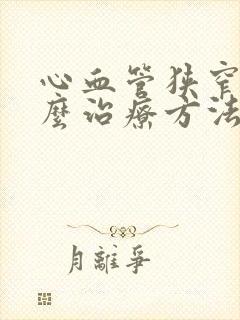 心血管狹窄
麼治療方法
月離爭